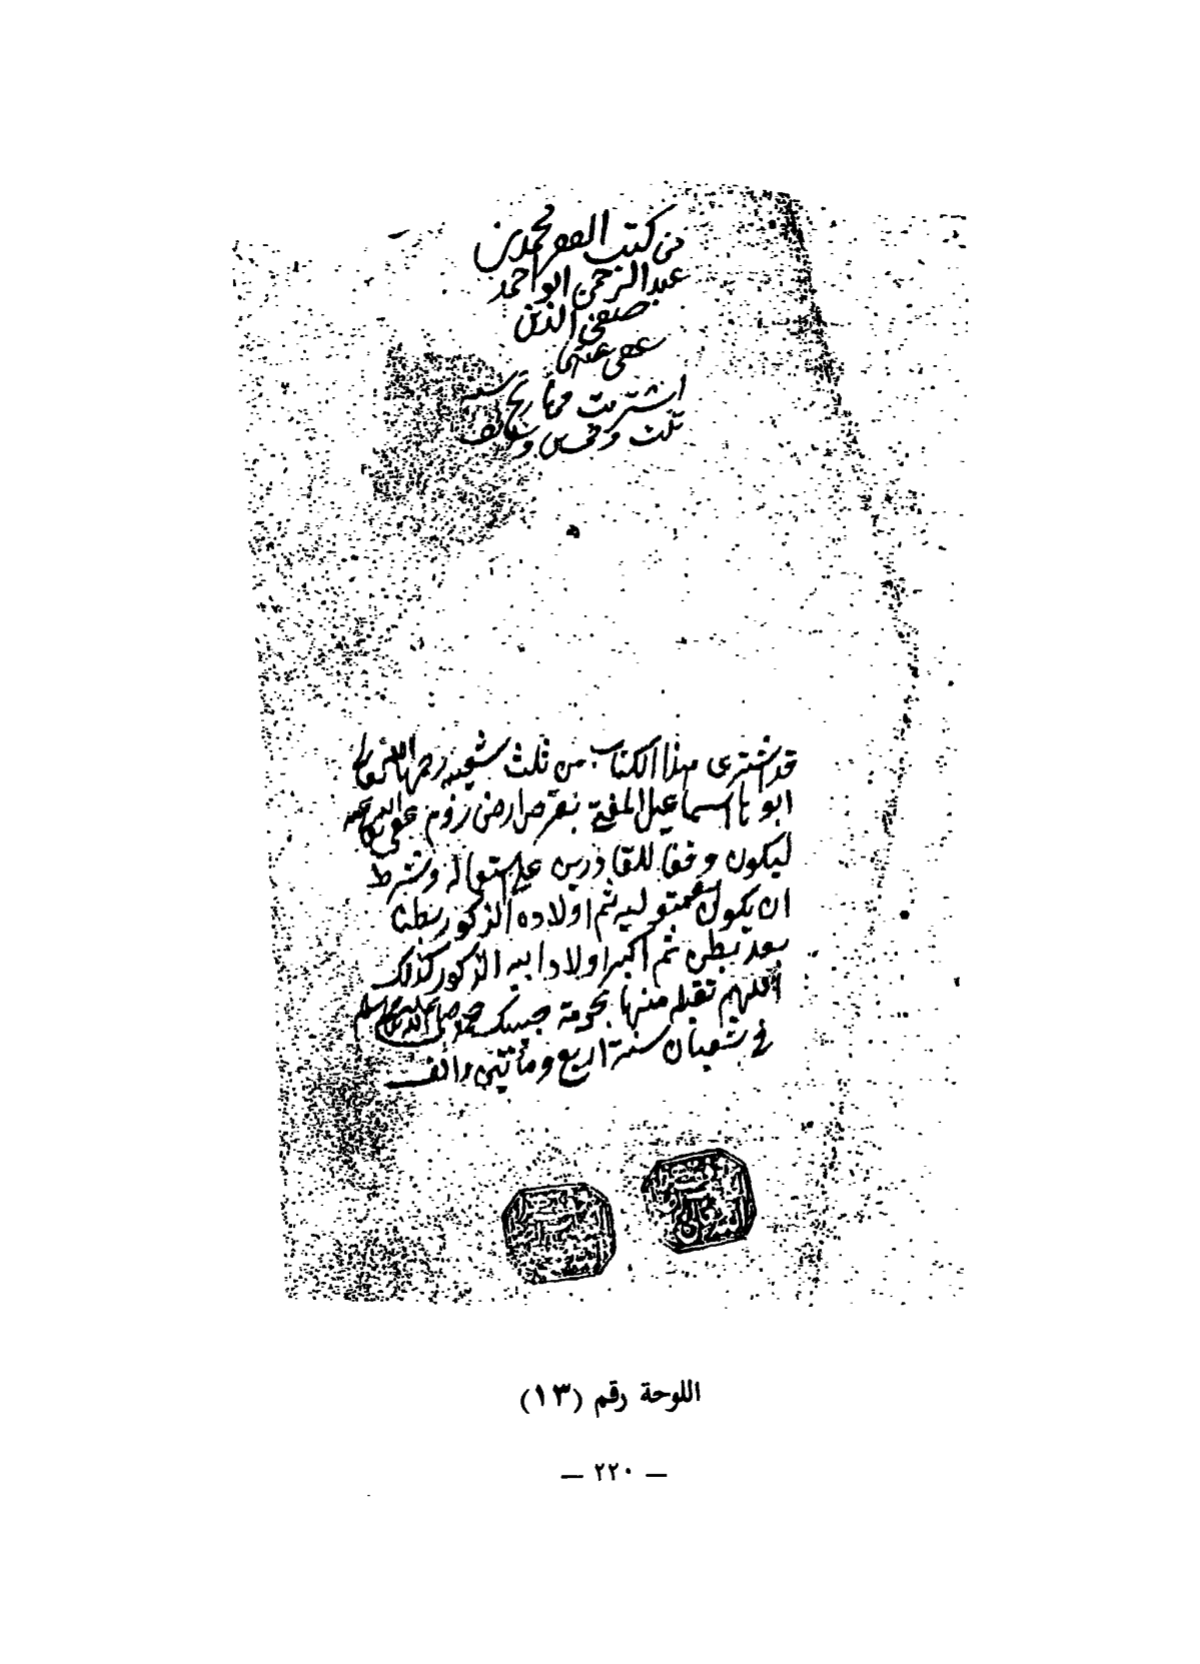 من كتب الفقير محمد بن
عبد الرحمن ابو احمد
صفي الدين
عفى عنهما
اشتريت بتاريخ سنة
ثلث وخمسين والف
قد اشترى هذا الكتاب من ثلث رحمها الله تعالى
ابو نا اسماعيل المفتى ارض روم عفى عنه
ليكون وقفا للقادرين على استعماله وشرط
ان يكون متوليه ثم اولاده الذكور بطنا
بعد بطن ثم اكبر اولاد ابيه الذكور كذلك
اللهم تقبله منها بحرمة حبيبك محمد صلى الله عليه وسلم
في شعبان سنة اربع ومأتين والف
اللوحة رقم (١٣)
— ٢٢٠ —